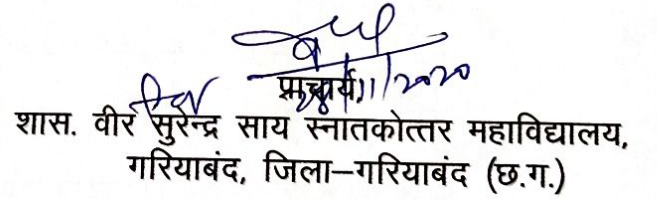 प्राचार्य,
शास. वीर सुरेन्द्र साय स्नातकोत्तर महाविद्यालय,
गरियाबंद, जिला–गरियाबंद (छ.ग.)